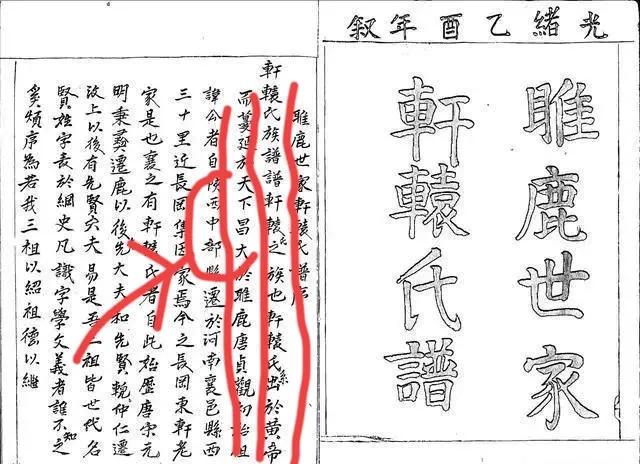 光緒乙酉年叙
睢鹿世家
軒轅氏譜
睢鹿世家軒轅氏譜序
軒轅氏族譜譜軒轅氏之族也軒轅氏系出於黄帝
而蔓延於天下昌大於睢鹿唐貞觀初始祖
諱公者自陝西中部縣遷於河南襄邑縣西
三十里近長岡集因家焉今之長岡東軒老
家是也襄之有軒轅氏者自此始歷唐宋元
明秉彝遷鹿以後先大夫和先賢輗仲仁遷
汶上以後有先賢六夫易是吾二祖皆世代名
賢姓字表於綱史凡識字學文義者誰不知之
奚煩序為若我三祖以紹祖德以繼